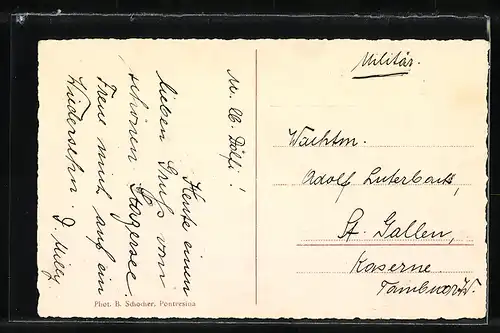 M. lb. Dölfi!
Heute einen
lieben Gruss vom
schönen
Freue mich auf ein
Wiedersehn. D. Milly
Phot. B. Schocher, Pontresina
Militär.
Wachtm.
Adolf Luterbach,
St. Gallen,
Kaserne